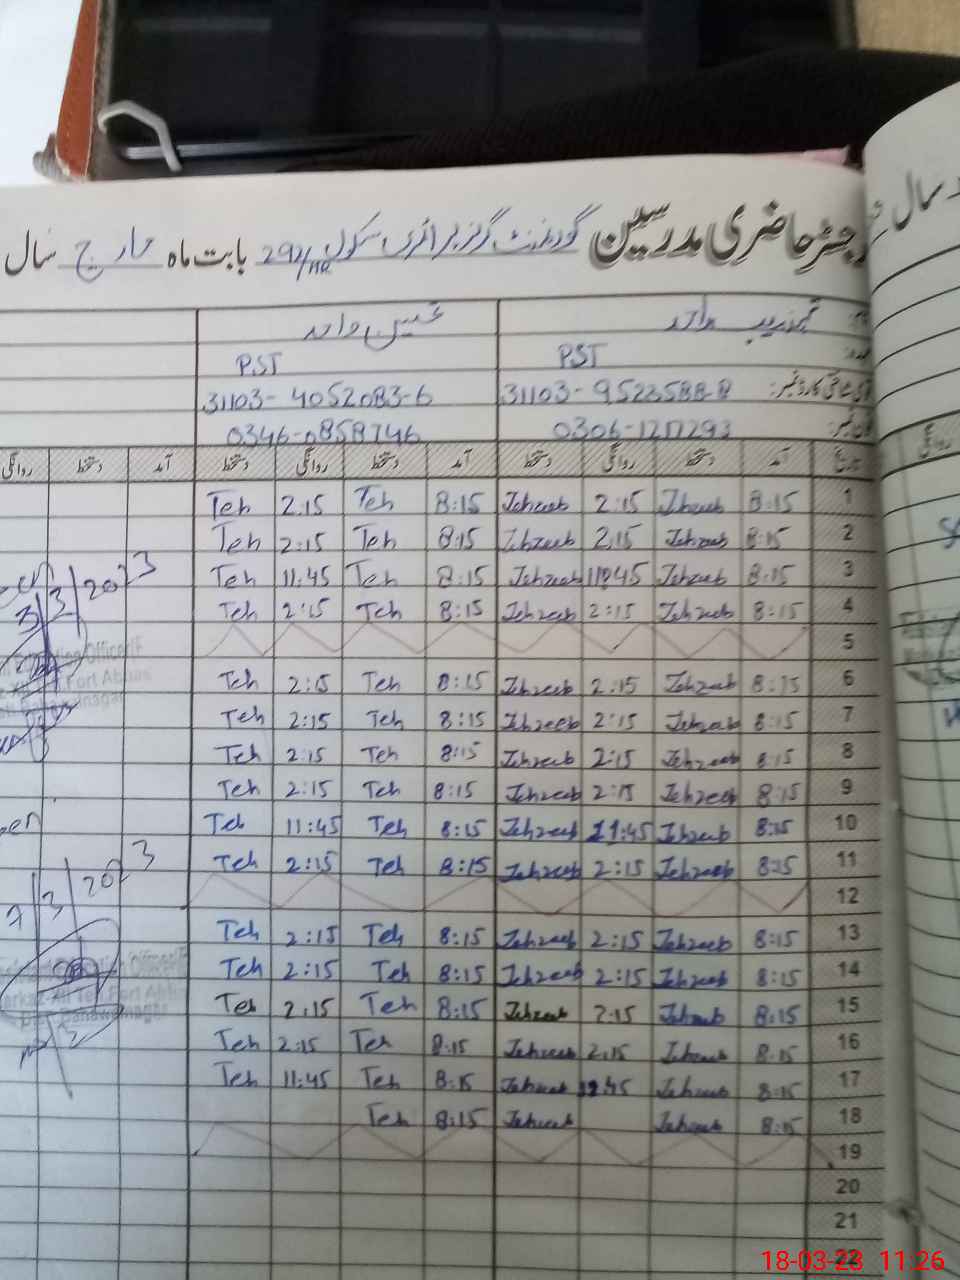 رجسٹر حاضری مدرسین گورنمنٹ گرلز پرائمری سکول 292/HR بابت ماہ مارچ سال
تہذیب
PST PST
قومی شناختی کارڈ نمبر: 31103-9523588-8 31103-4052083-6
فون نمبر: 0306-1217293 0346-0858746
تاریخ آمد دستخط روانگی دستخط آمد دستخط روانگی دستخط آمد دستخط روانگی
1 8:15 Tehzeeb 2:15 Tehzeeb 8:15 Teh 2:15 Teh
2 8:15 Tehzeeb 2:15 Tehzeeb 8:15 Teh 2:15 Teh
3 8:15 Tehzeeb 11:45 Tehzeeb 8:15 Teh 11:45 Teh
4 8:15 Tehzeeb 2:15 Tehzeeb 8:15 Teh 2:15 Teh
5
6 8:15 Tehzeeb 2:15 Tehzeeb 8:15 Teh 2:15 Teh
7 8:15 Tehzeeb 2:15 Tehzeeb 8:15 Teh 2:15 Teh
8 8:15 Tehzeeb 2:15 Tehzeeb 8:15 Teh 2:15 Teh
9 8:15 Tehzeeb 2:15 Tehzeeb 8:15 Teh 2:15 Teh
10 8:15 Tehzeeb 11:45 Tehzeeb 8:15 Teh 11:45 Teh
11 8:15 Tehzeeb 2:15 Tehzeeb 8:15 Teh 2:15 Teh
12
13 8:15 Tehzeeb 2:15 Tehzeeb 8:15 Teh 2:15 Teh
14 8:15 Tehzeeb 2:15 Tehzeeb 8:15 Teh 2:15 Teh
15 8:15 Tehzeeb 2:15 Tehzeeb 8:15 Teh 2:15 Teh
16 8:15 Tehzeeb 2:15 Tehzeeb 8:15 Teh 2:15 Teh
17 8:15 Tehzeeb 11:45 Tehzeeb 8:15 Teh 11:45 Teh
18 8:15 Tehzeeb Tehzeeb 8:15 Teh
19
20
21
22
3/3/2023
Officer
Teh.Fort Abbas
7/3/2023
Officer
Teh.Fort Abbas
Bahawalnagar
سال
روانگی
18-03-23 11:26